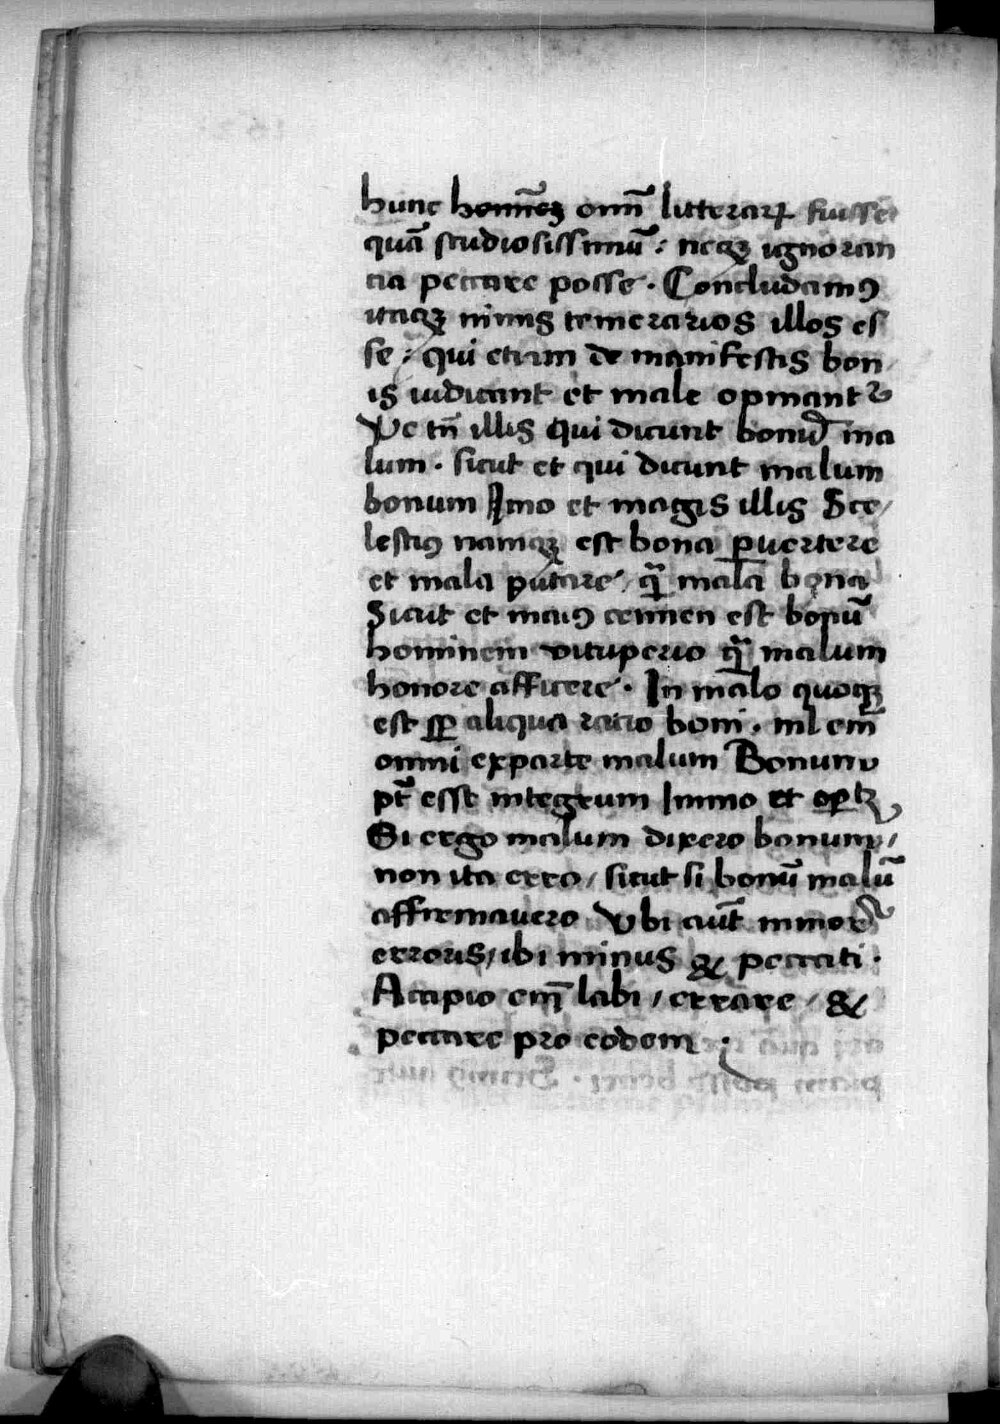 hunc homineꝫ om̅i̅ litterarꝝ fuisse
quā studiosissimū : neqꝫ ignoran
tia peccare posse · Concludamꝰ
itaqꝫ nimis temerarios illos es
se / qui etiam de manifestis bon
is iudicant et male opinantᷣ
Ve tn̄ illis qui dicunt bonū ma
lum · sicut et qui dicunt malum
bonum Imo et magis illis Sce/
lestiꝰ namqꝫ est bona ꝑuertere
et mala putare / qᷓ mala bona
Sicut et maiꝰ crimen est bonū
hominem vituperio qᷓ malum
honore afficere · In malo quoqꝫ
est sꝑ aliqua ratio boni · nil em̄
omni ex parte malum Bonum
pt̄ esse integrum Immo et oꝑtꝫ
Si ergo malum dixero bonum /
non ita erro / sicut si bonū malū
affirmauero Vbi aūt minor
erroris / ibi minus & peccati ·
Accipio em̄ labi / errare / &
peccare pro eodem ·